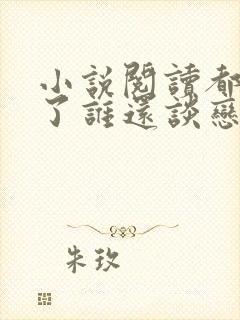 小說閱讀都
了誰還談戀
朱玫